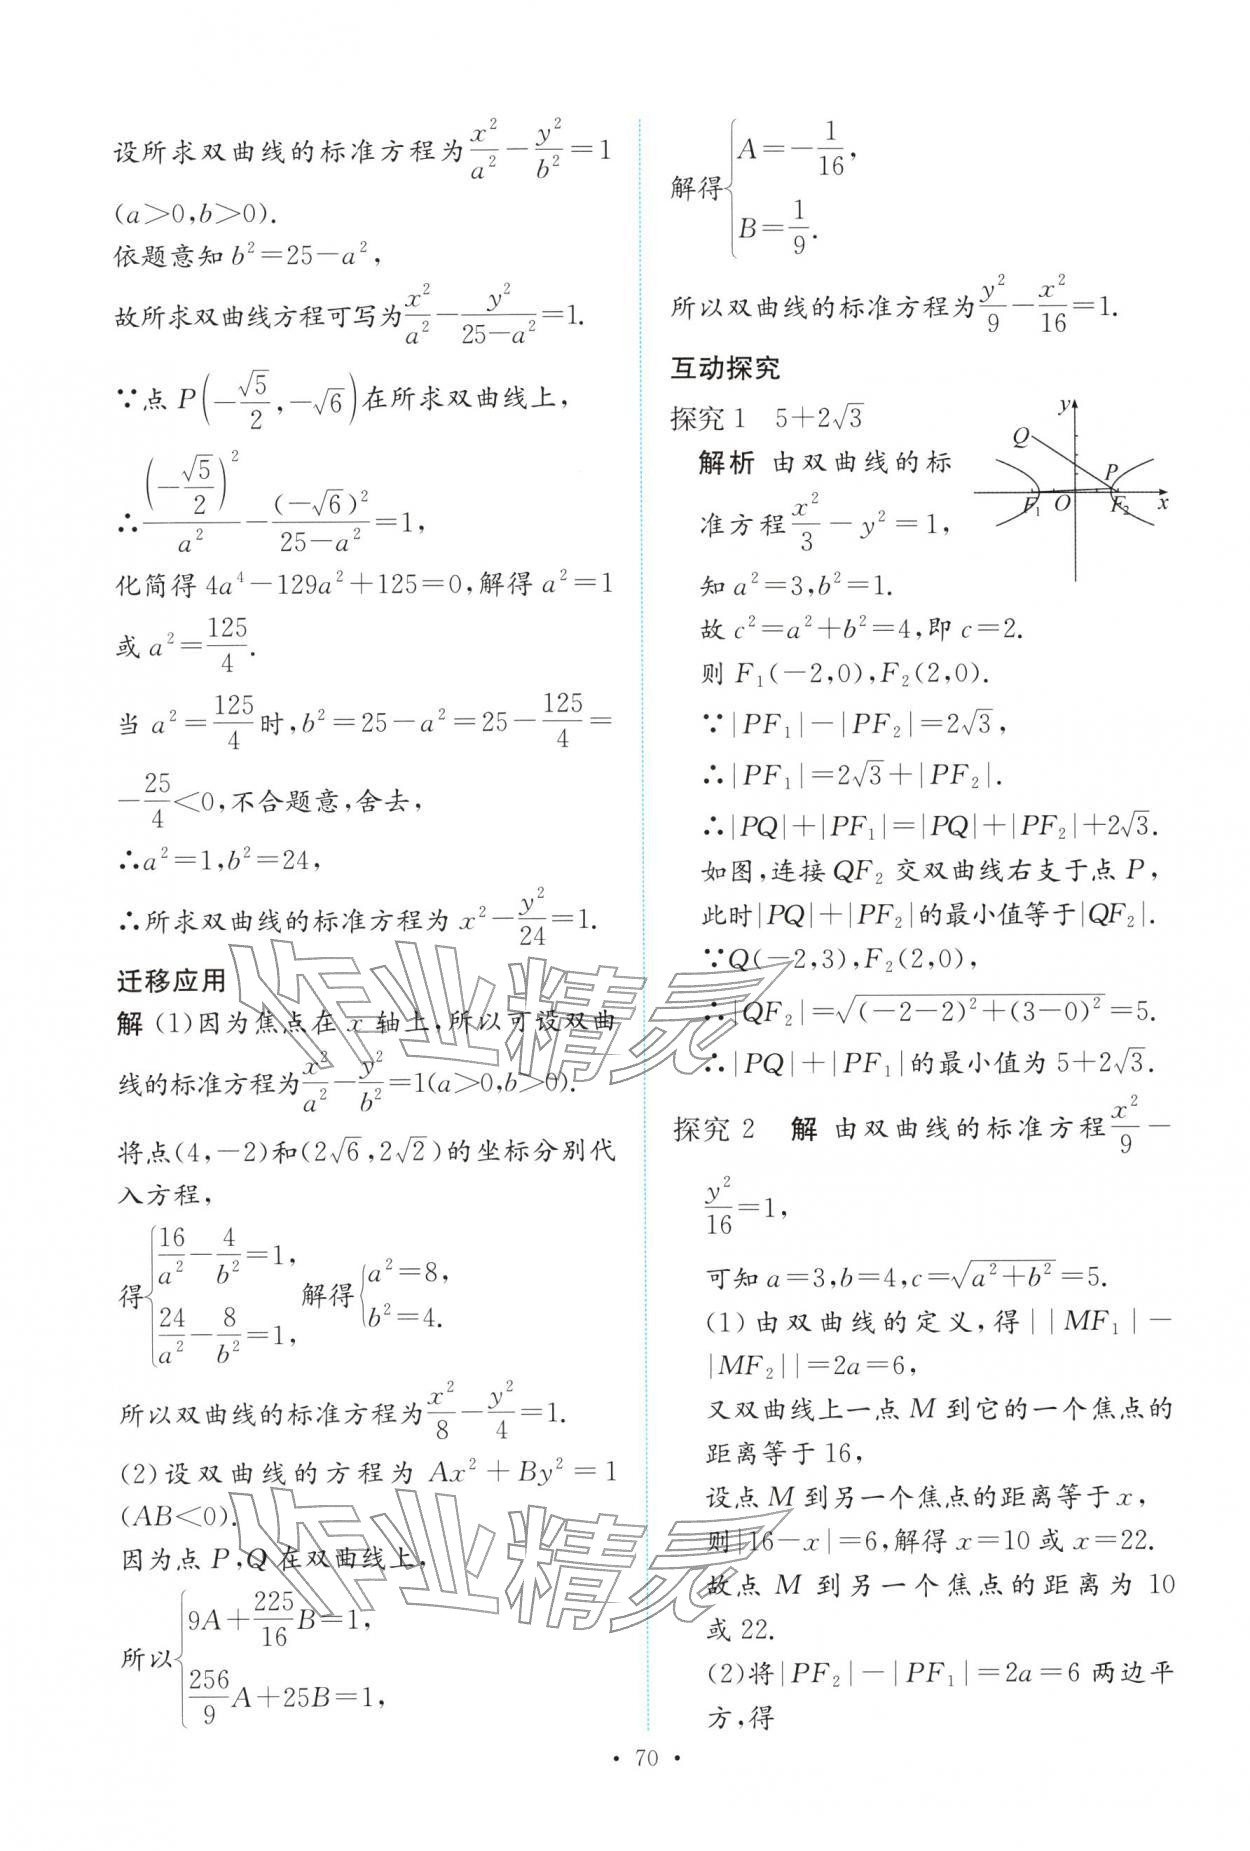 设所求双曲线的标准方程为x²/a²−y²/b²=1
(a>0,b>0).
依题意知 b²=25−a²,
故所求双曲线方程可写为x²/a²−y²/(25−a²)=1.
∵点 P(−√5/2,−√6)在所求双曲线上,
∴(−√5/2)²/a²−(−√6)²/(25−a²)=1,
化简得 4a⁴−129a²+125=0,解得 a²=1
或 a²=125/4.
当 a²=125/4时,b²=25−a²=25−125/4=
−25/4<0,不合题意,舍去,
∴a²=1,b²=24,
∴所求双曲线的标准方程为 x²−y²/24=1.
迁移应用
解 (1)因为焦点在 x 轴上,所以可设双曲
线的标准方程为x²/a²−y²/b²=1(a>0,b>0).
将点(4,−2)和(2√6,2√2)的坐标分别代
入方程,
得{16/a²−4/b²=1, 24/a²−8/b²=1, 解得{a²=8, b²=4.
所以双曲线的标准方程为x²/8−y²/4=1.
(2)设双曲线的方程为 Ax²+By²=1
(AB<0).
因为点 P,Q 在双曲线上,
所以{9A+225/16B=1, 256/9A+25B=1,
解得{A=−1/16, B=1/9.
所以双曲线的标准方程为y²/9−x²/16=1.
互动探究
探究 1 5+2√3
解析 由双曲线的标
准方程x²/3−y²=1,
知 a²=3,b²=1.
故 c²=a²+b²=4,即 c=2.
则 F₁(−2,0),F₂(2,0).
y
Q
P
F₁ O F₂ x
∵|PF₁|−|PF₂|=2√3,
∴|PF₁|=2√3+|PF₂|.
∴|PQ|+|PF₁|=|PQ|+|PF₂|+2√3.
如图,连接 QF₂ 交双曲线右支于点 P,
此时|PQ|+|PF₂|的最小值等于|QF₂|.
∵Q(−2,3),F₂(2,0),
∴|QF₂|=√((−2−2)²+(3−0)²)=5.
∴|PQ|+|PF₁|的最小值为 5+2√3.
探究 2 解 由双曲线的标准方程x²/9−
y²/16=1,
可知 a=3,b=4,c=√(a²+b²)=5.
(1)由双曲线的定义,得||MF₁|−
|MF₂||=2a=6,
又双曲线上一点 M 到它的一个焦点的
距离等于 16,
设点 M 到另一个焦点的距离等于 x,
则|16−x|=6,解得 x=10 或 x=22.
故点 M 到另一个焦点的距离为 10
或 22.
(2)将|PF₂|−|PF₁|=2a=6 两边平
方,得
作业精灵
作业精灵
• 70 •